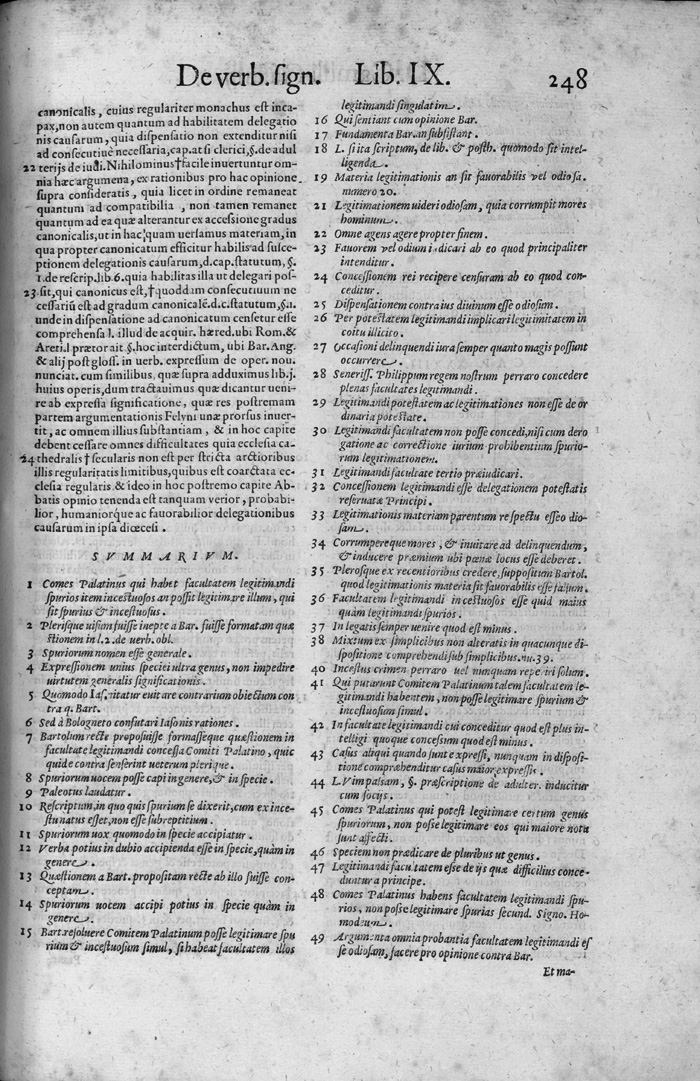 De verb. sign. Lib. IX. 248
canonicalis, cuius regulariter monachus est inca-
pax, non autem quantum ad habilitatem delegatio
nis causarum, quia dispensatio non extenditur nisi
ad consecutiuè necessaria, cap. at si clerici, §. de adul
22 terijs de iudi. Nihilominus † facile inuertuntur om-
nia hæc argumenta, ex rationibus pro hac opinione
supra consideratis, quia licet in ordine remaneat
quantum ad compatibilia, non tamen remanet
quantum ad ea quæ alterantur ex accessione gradus
canonicalis, ut in hac, quam uersamus materiam, in
qua propter canonicatum efficitur habilis ad susce-
ptionem delegationis causarum, d. cap. statutum, §.
1. de rescrip. lib. 6. quia habilitas illa ut delegari pos-
23 sit, qui canonicus est, † quoddam consecutiuum ne
cessariũ est ad gradum canonicalē. d. c. statutum, §. 1.
unde in dispensatione ad canonicatum censetur esse
comprehensa l. illud de acquir. hæred. ubi Rom. &
Areti. l prætor ait §. hoc interdictum, ubi Bar. Ang.
& alij post gloss. in uerb. expressum de oper. nou.
nunciat. cum similibus, quæ supra adduximus lib. j.
huius operis, dum tractauimus quæ dicantur ueni-
re ab expressa significatione, quæ res postremam
partem argumentationis Felyni unæ prorsus inuer-
tit, ac omnem illius substantiam, & in hoc capite
debent cessare omnes difficultates quia ecclesia ca-
24 thedralis † secularis non est per stricta arctioribus
illis regularitatis limitibus, quibus est coarctata ec-
clesia regularis & ideo in hoc postremo capite Ab-
batis opinio tenenda est tanquam verior, probabi-
lior, humaniorque ac fauorabilior delegationibus
causarum in ipsa diœcesi.
SVMMARIVM.
1 Comes Palatinus qui habet facultatem legitimandi
spurios item incestuosos an possit legitimare illum, qui
sit spurius & incestuosus.
2 Plerisque uisam fuisse inepte a Bar. fuisse formatam quæ
stionem in l. 2. de uerb. obl.
3 Spuriorum nomen esse generale.
4 Expressionem unius speciei ultra genus, non impedire
uirtutem generalis significationis.
5 Quomodo Ias. nitatur euitare contrarium obiectum con
tra q. Bart.
6 Sed à Bologneto confutari Iasonis rationes.
7 Bartolum recte proposuisse formasseque quæstionem in
facultate legitimandi concessa Comiti Palatino, quic
quid e contra senserint ueterum plerique.
8 Spuriorum uocem posse capi in genere, & in specie.
9 Paleotus laudatur.
10 Rescriptum, in quo quis spurium se dixerit, cum ex ince-
stu natus esset, non esse subreptitium.
11 Spuriorum uox quomodo in specie accipiatur.
12 Verba potius in dubio accipienda esse in specie, quàm in
genere.
13 Quæstionem a Bart. propositam recte ab illo fuisse con-
ceptam.
14 Spuriorum uocem accipi potius in specie quàm in
genere.
15 Bart. resoluere Comitem Palatinum posse legitimare spu
rium & incestuosum simul, si habeat facultatem illos
legitimandi singulatim.
16 Qui sentiant cum opinione Bar.
17 Fundamenta Bar. an subsistant.
18 L. si ita scriptum, de lib. & posth. quomodo sit intel-
ligenda.
19 Materia legitimationis an sit fauorabilis vel odiosa.
numero 20.
21 Legitimationem uideri odiosam, quia corrumpit mores
hominum.
22 Omne agens agere propter finem.
23 Fauorem vel odium iudicari ab eo quod principaliter
intenditur.
24 Concessionem rei recipere censuram ab eo quod con-
ceditur.
25 Dispensationem contra ius diuinum esse odiosum.
26 Per potestatem legitimandi implicari legitimitatem in
coitu illicito.
27 Occasioni delinquendi iura semper quanto magis possunt
occurrere.
28 Seneriss. Philippum regem nostrum perraro concedere
plenas facultates legitimandi.
29 Legitimandi potestatem ac legitimationes non esse de or
dinaria potestate.
30 Legitimandi facultatem non posse concedi, nisi cum dero
gatione ac correctione iurium prohibentium spurio-
rum legitimationem.
31 Legitimandi facultate tertio præiudicari.
32 Concessionem legitimandi esse delegationem potestatis
reseruatæ Principi.
33 Legitimationis materiam parentum respectu esse odio-
sam.
34 Corrumpereque mores, & inuitare ad delinquendum,
& inducere præmium ubi pœnæ locus esse deberet.
35 Plerosque ex recentioribus credere, suppositum Bartol.
quod legitimationis materia sit fauorabilis esse falsum.
36 Facultatem legitimandi incestuosos esse quid maius
quàm legitimandi spurios.
37 In legatis semper uenire quod est minus.
38 Mixtum ex simplicibus non alteratis in quacunque di-
spositione comprehendi sub simplicibus. nu. 39.
40 Incestus crimen perraro uel nunquam reperiri solum.
41 Qui putarunt Comitem Palatinum talem facultatem le-
gitimandi habentem, non posse legitimare spurium &
incestuosum simul.
42 In facultate legitimandi cui conceditur quod est plus in-
telligi quoque concessum quod est minus.
43 Casus aliqui quando sunt expressi, nunquam in disposi-
tione comprehenditur casus maior expressis.
44 L. Vim passam, §. præscriptione de adulter. inducitur
cum socijs.
45 Comes Palatinus qui potest legitimare certum genus
spuriorum, non posse legitimare eos qui maiore nota
sunt affecti.
46 Speciem non prædicare de pluribus ut genus.
47 Legitimandi facultatem esse de ijs quæ difficilius conce-
duntur a principe.
48 Comes Palatinus habens facultatem legitimandi spu-
rios, non posse legitimare spurias secund. Signo. Ho-
modeum.
49 Argumenta omnia probantia facultatem legitimandi es
se odiosam, facere pro opinione contra Bar.
Et ma-